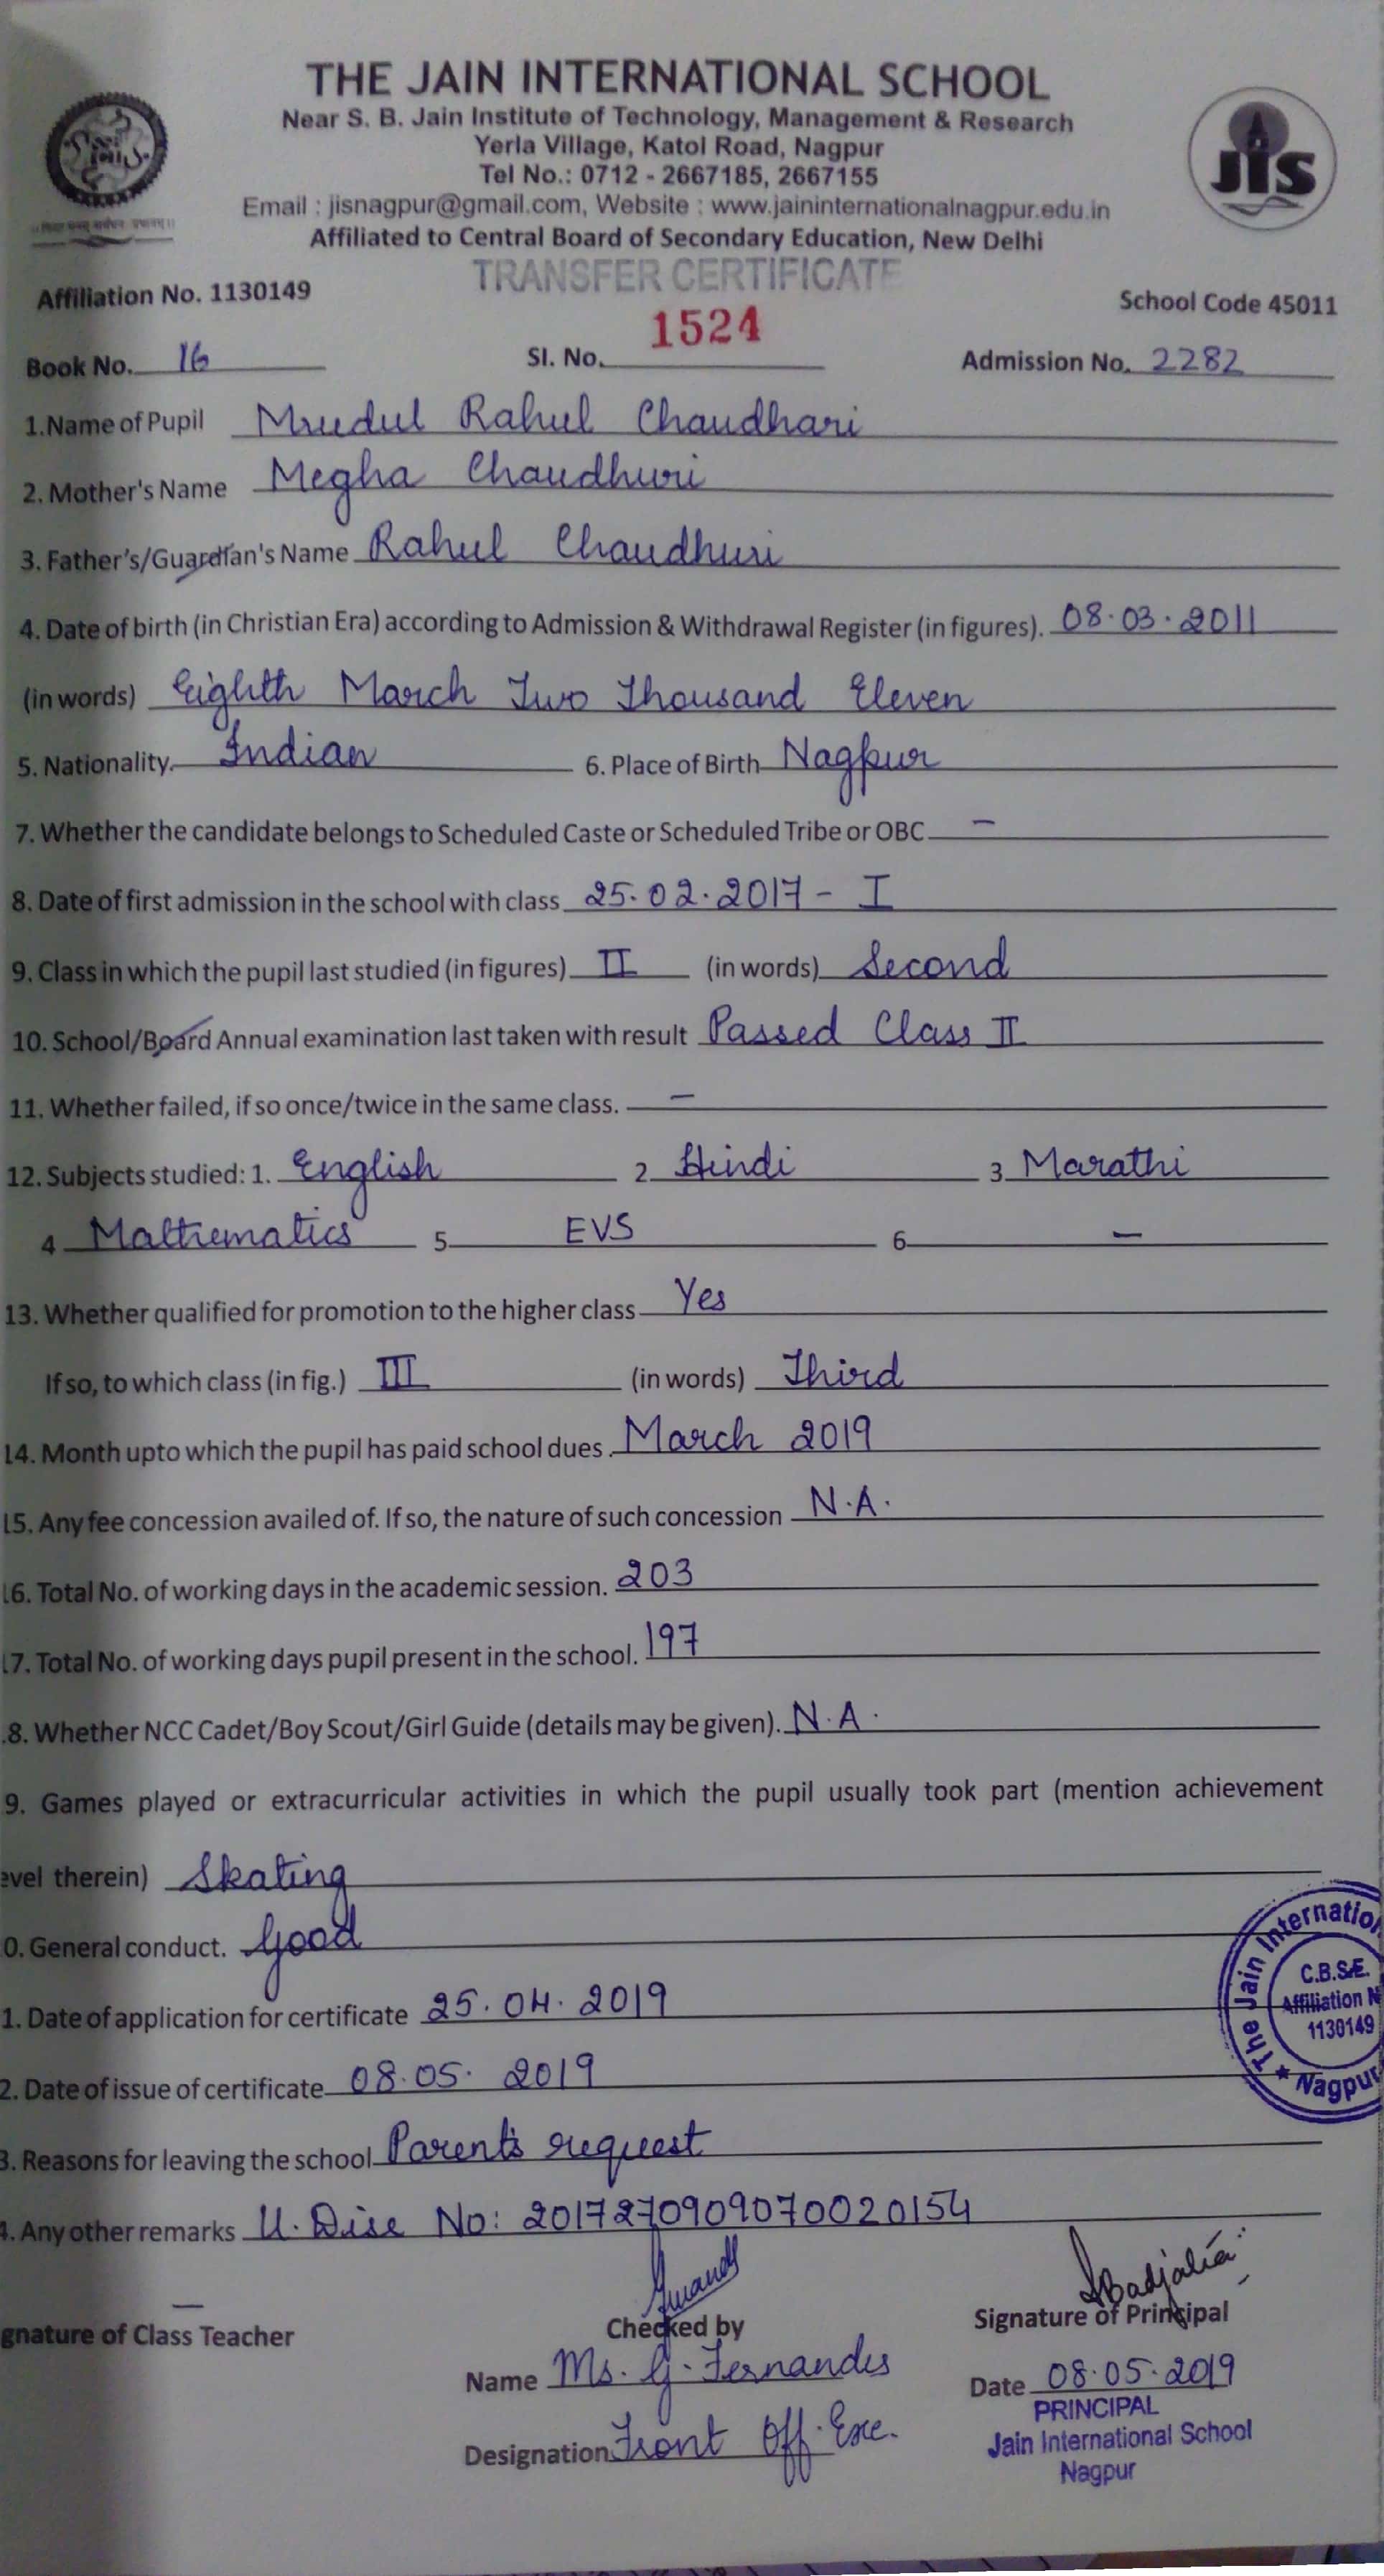 THE JAIN INTERNATIONAL SCHOOL
Near S. B. Jain Institute of Technology, Management & Research
Yerla Village, Katol Road, Nagpur
Tel No.: 0712 - 2667185, 2667155
Email : jisnagpur@gmail.com, Website : www.jaininternationalnagpur.edu.in
Affiliated to Central Board of Secondary Education, New Delhi
JIS
TRANSFER CERTIFICATE
Affiliation No. 1130149 School Code 45011
Book No. 16 Sl. No. 1524 Admission No. 2282
1.Name of Pupil Mrudul Rahul Chaudhari
2. Mother's Name Megha Chaudhuri
3. Father's/Guardian's Name Rahul Chaudhuri
4. Date of birth (in Christian Era) according to Admission & Withdrawal Register (in figures). 08.03.2011
(in words) Eighth March Two Thousand Eleven
5. Nationality. Indian 6. Place of Birth Nagpur
7. Whether the candidate belongs to Scheduled Caste or Scheduled Tribe or OBC —
8. Date of first admission in the school with class 25.02.2017 - I
9. Class in which the pupil last studied (in figures) II (in words) Second
10. School/Board Annual examination last taken with result Passed Class II
11. Whether failed, if so once/twice in the same class. —
12. Subjects studied: 1. English 2. Hindi 3. Marathi
4 Mathematics 5. EVS 6. —
13. Whether qualified for promotion to the higher class Yes
If so, to which class (in fig.) III (in words) Third
14. Month upto which the pupil has paid school dues. March 2019
15. Any fee concession availed of. If so, the nature of such concession N.A.
16. Total No. of working days in the academic session. 203
17. Total No. of working days pupil present in the school. 197
8. Whether NCC Cadet/Boy Scout/Girl Guide (details may be given). N.A.
9. Games played or extracurricular activities in which the pupil usually took part (mention achievement
evel therein) Skating
0. General conduct. Good
1. Date of application for certificate 25.04.2019
2. Date of issue of certificate 08.05.2019
3. Reasons for leaving the school Parent's request
4. Any other remarks U. Dise No: 2017270909070020154
The Jain Internatio
C.B.S.E.
Affiliation N
1130149
★ Nagpur
—
gnature of Class Teacher Checked by Signature of Principal
Name Ms. G. Fernandes Date 08.05.2019
Designation Front Off. Exe.
PRINCIPAL
Jain International School
Nagpur